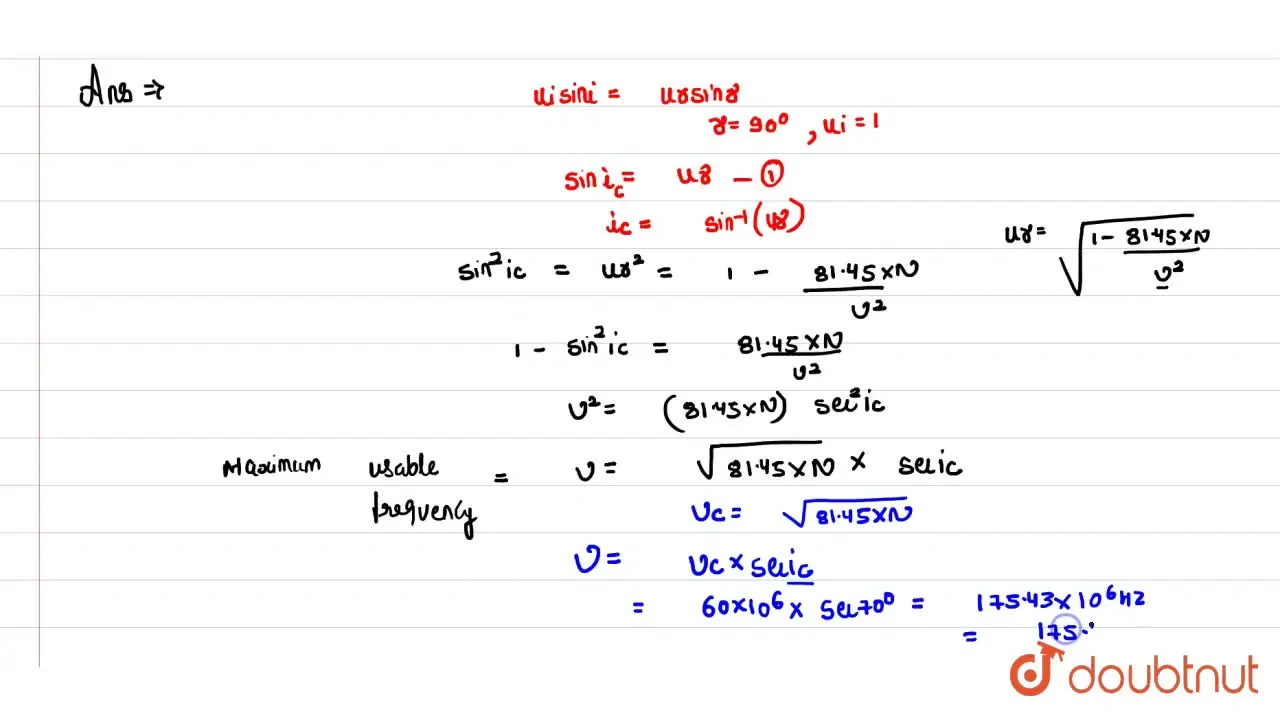 Ans ⇒
uisini = ursinr
r = 90° , ui = 1
sin ic = ur — ①
ic = sin⁻¹(ur)
ur = √(1 - 81.45×N/υ²)
sin²ic = ur² = 1 - 81.45×N/υ²
1 - sin²ic = 81.45×N/υ²
υ² = (81.45×N) sec²ic
Maximum usable frequency = υ = √81.45×N × secic
υc = √81.45×N
υ = υc × secic
= 60×10⁶ × sec70° = 175.43×10⁶Hz
= 175.
doubtnut